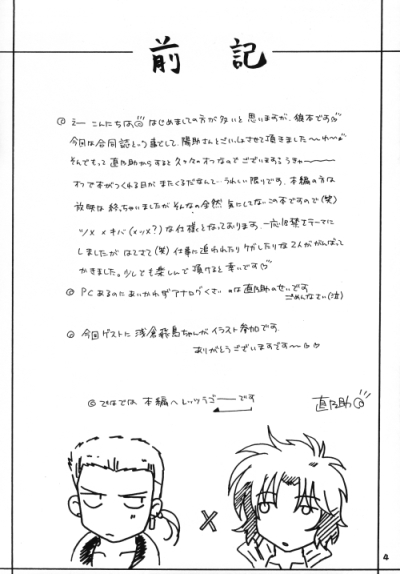 前記
◎ えー こんにちは☺ はじめましての方が多いと思いますが、狼本です
今回は合同誌という事でして、陽助さんとごいっしょさせて頂きました〜わ〜
そんでもって直乃助からすると久々のオフなのでございますようきゃ〜〜〜
オフで本がつくれる日がまたくるだなんて…うれしい限りです。本編の方は
放映は終っちゃいましたがそんなの全然気にしてなーこの本ですので(笑)
ツメ×キバ(×ツメ?)な仕様となっております、一応仮装をテーマに
しましたがはてさて(笑)仕事に追われたりケガしたりな2人ががんばって
かきました。少しでも楽しんで頂けると幸いです♡
◎ PCあるのにあいかわらずアナログくさいのは直乃助のせいです
ごめんなさい(泣)
◎ 今回ゲストに浅倉飛鳥ちゃんがイラスト参加です
ありがとうございますです〜
◎ ではでは 本編へレッツラゴーです
直乃助
×
4